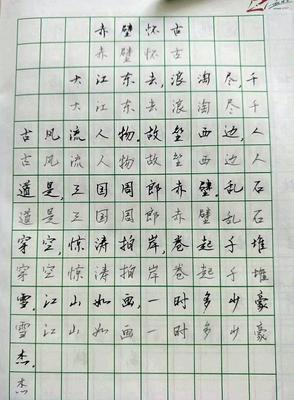 赤壁怀古
赤壁怀古
大江东去,浪淘尽,千
大江东去 浪淘尽 千
古风流人物.故垒西边,人
古风流人物 故垒西边 人
道是,三国周郎赤壁.乱石
道是 三国周郎赤壁 乱石
穿空,惊涛拍岸,卷起千堆
穿空 惊涛拍岸 卷起千堆
雪.江山如画,一时多少豪
雪 江山如画 一时多少豪
杰.
杰